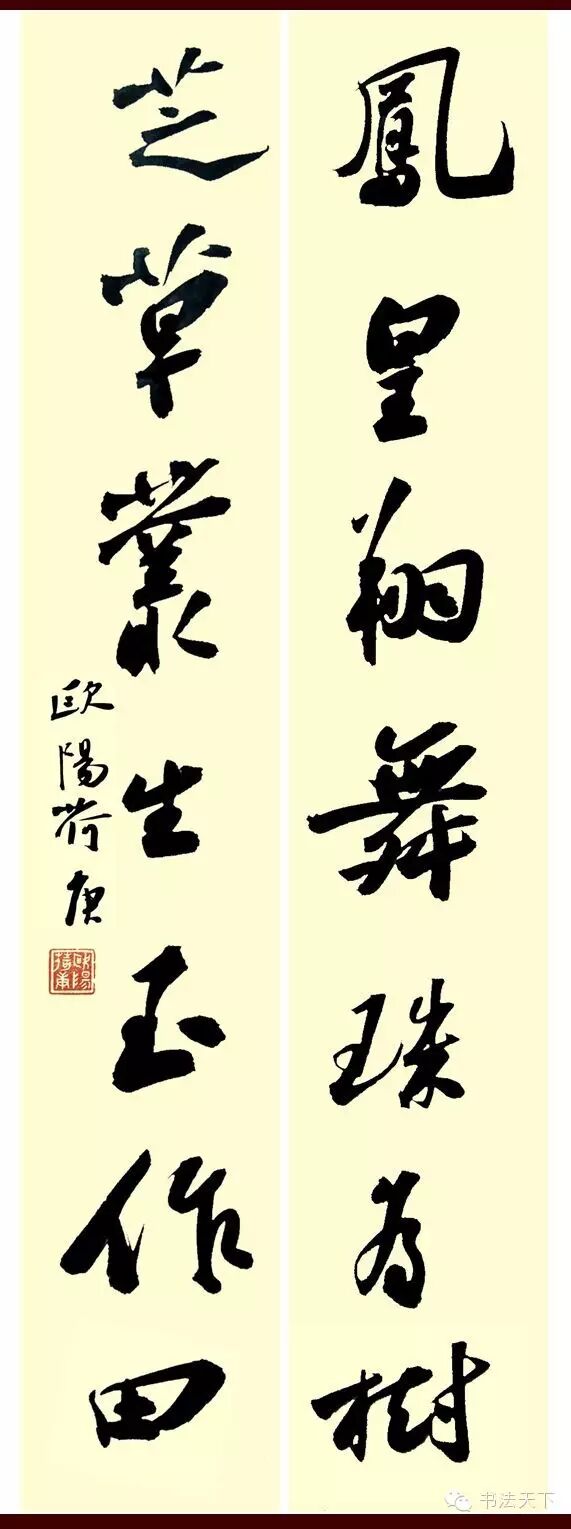 鳳皇翔舞珠為樹
芝草叢生玉作田
歐陽荷庚
书法天下